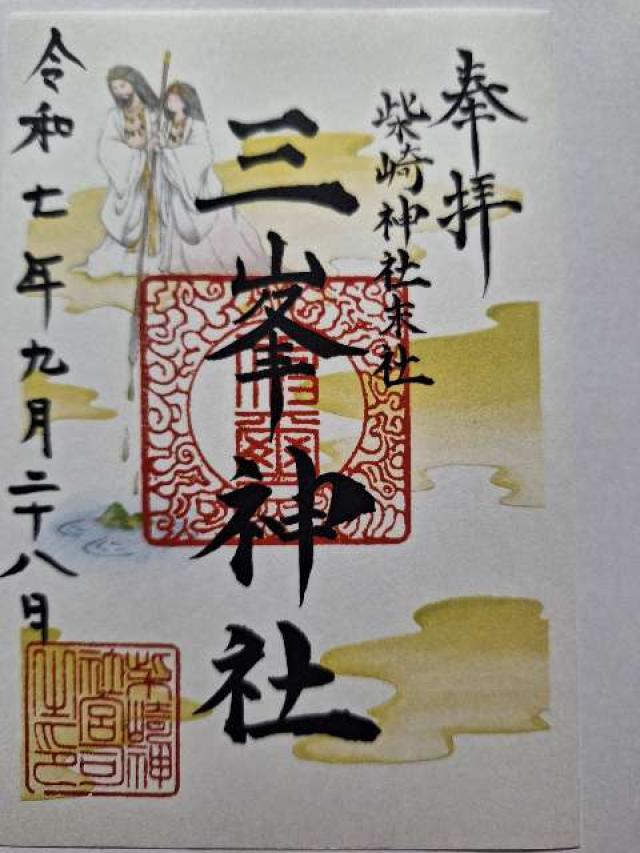 奉拝
柴崎神社末社
三峯神社
令和七年九月二十八日
柴崎神
社宮司
之印